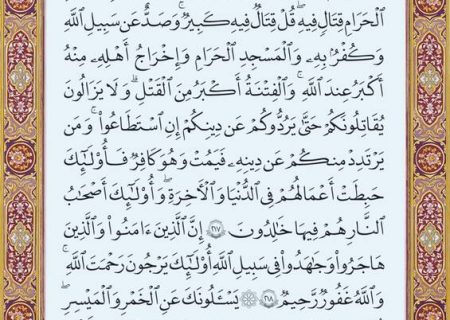 ٱلۡحَرَامِ قِتَالٖ فِيهِۖ قُلۡ قِتَالٞ فِيهِ كَبِيرٞۚ وَصَدٌّ عَن سَبِيلِ ٱللَّهِ
وَكُفۡرُۢ بِهِۦ وَٱلۡمَسۡجِدِ ٱلۡحَرَامِ وَإِخۡرَاجُ أَهۡلِهِۦ مِنۡهُ
أَكۡبَرُ عِندَ ٱللَّهِۚ وَٱلۡفِتۡنَةُ أَكۡبَرُ مِنَ ٱلۡقَتۡلِۗ وَلَا يَزَالُونَ
يُقَٰتِلُونَكُمۡ حَتَّىٰ يَرُدُّوكُمۡ عَن دِينِكُمۡ إِنِ ٱسۡتَطَٰعُواْۚ وَمَن
يَرۡتَدِدۡ مِنكُمۡ عَن دِينِهِۦ فَيَمُتۡ وَهُوَ كَافِرٞ فَأُوْلَٰٓئِكَ
حَبِطَتۡ أَعۡمَٰلُهُمۡ فِي ٱلدُّنۡيَا وَٱلۡأٓخِرَةِۖ وَأُوْلَٰٓئِكَ أَصۡحَٰبُ
ٱلنَّارِۖ هُمۡ فِيهَا خَٰلِدُونَ ٢١٧ إِنَّ ٱلَّذِينَ ءَامَنُواْ وَٱلَّذِينَ
هَاجَرُواْ وَجَٰهَدُواْ فِي سَبِيلِ ٱللَّهِ أُوْلَٰٓئِكَ يَرۡجُونَ رَحۡمَتَ ٱللَّهِۚ
وَٱللَّهُ غَفُورٞ رَّحِيمٞ ٢١٨ ۞ يَسۡـَٔلُونَكَ عَنِ ٱلۡخَمۡرِ وَٱلۡمَيۡسِرِۖ